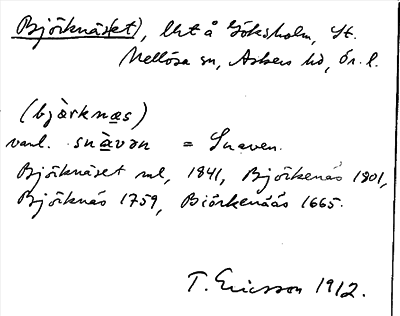 Björknäs(et), lht å Göksholm, St.
Mellösa sn, Askers hd, Ör. l.
(bjà̤rknæs)
vanl. snàvən = Snaven.
Björknäset ml, 1841, Björkenäs 1801,
Björknäs 1759, Biörkenääs 1665.
T. Ericsson 1912.